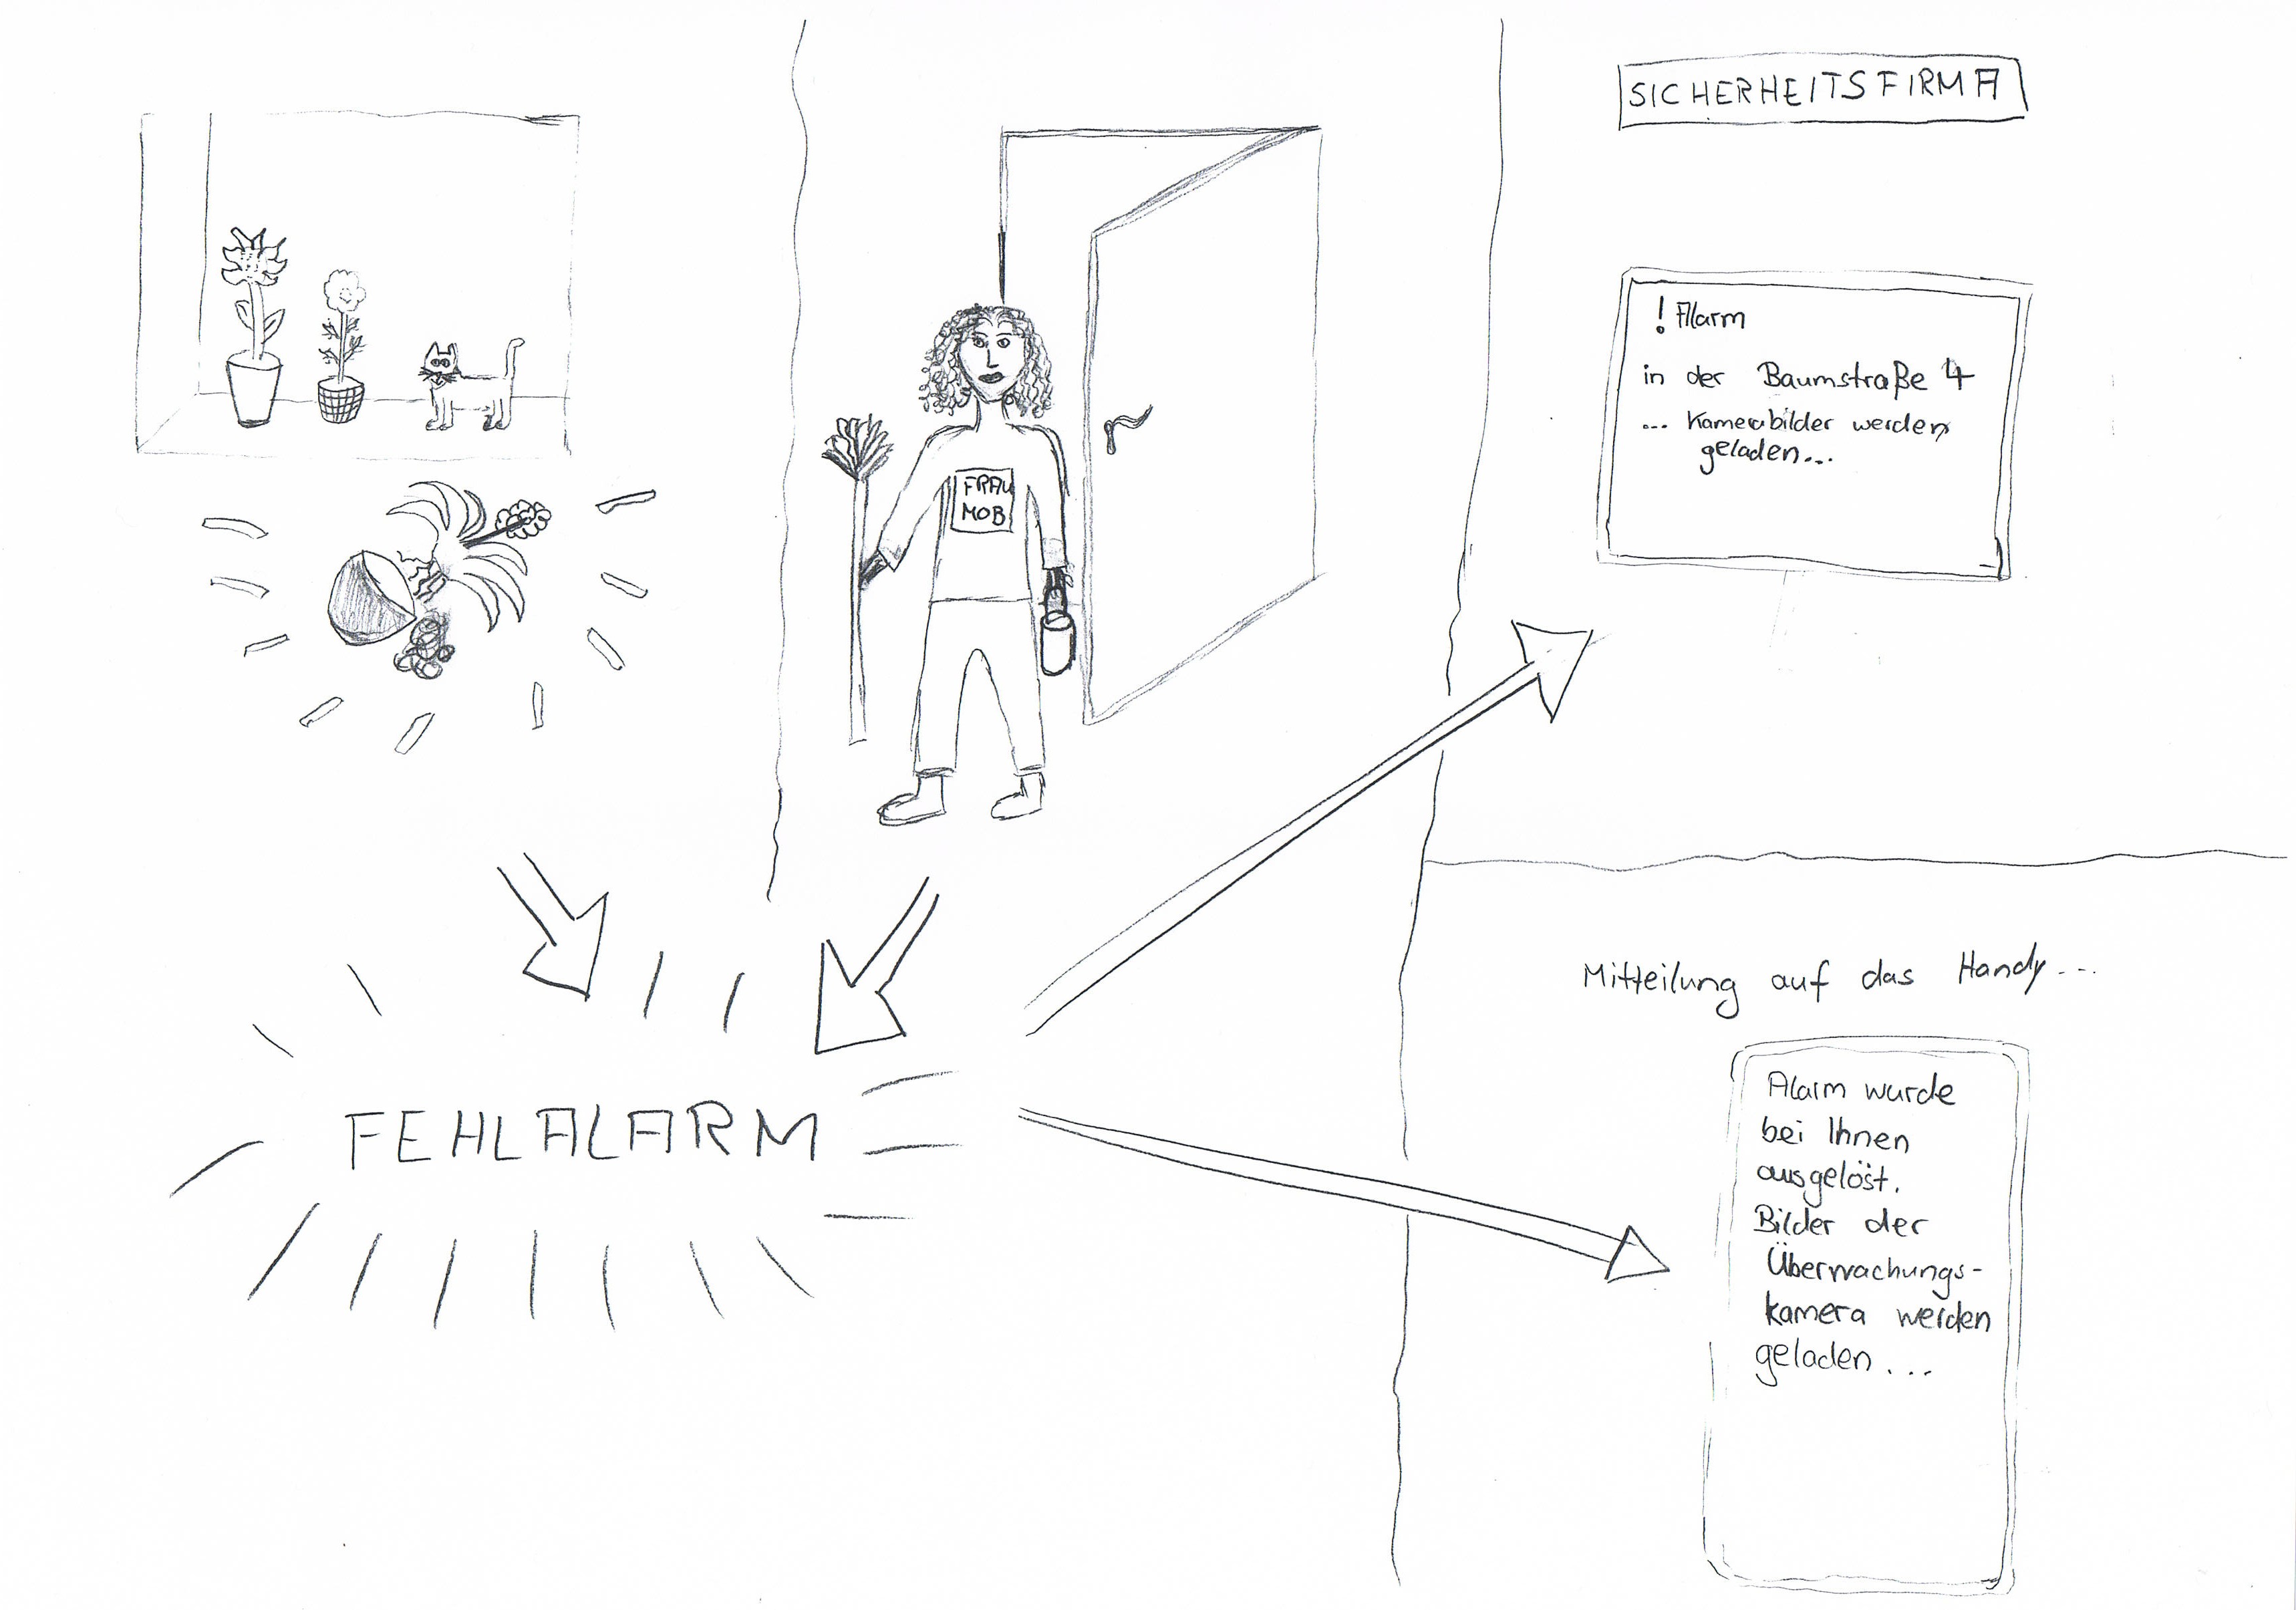 FRAU
MOB
FEHLALARM
SICHERHEITSFIRMA
! Alarm
in der Baumstraße 4
... Kamerabilder werden
geladen...
Mitteilung auf das Handy...
Alarm wurde
bei Ihnen
ausgelöst.
Bilder der
Überwachungs-
kamera werden
geladen...